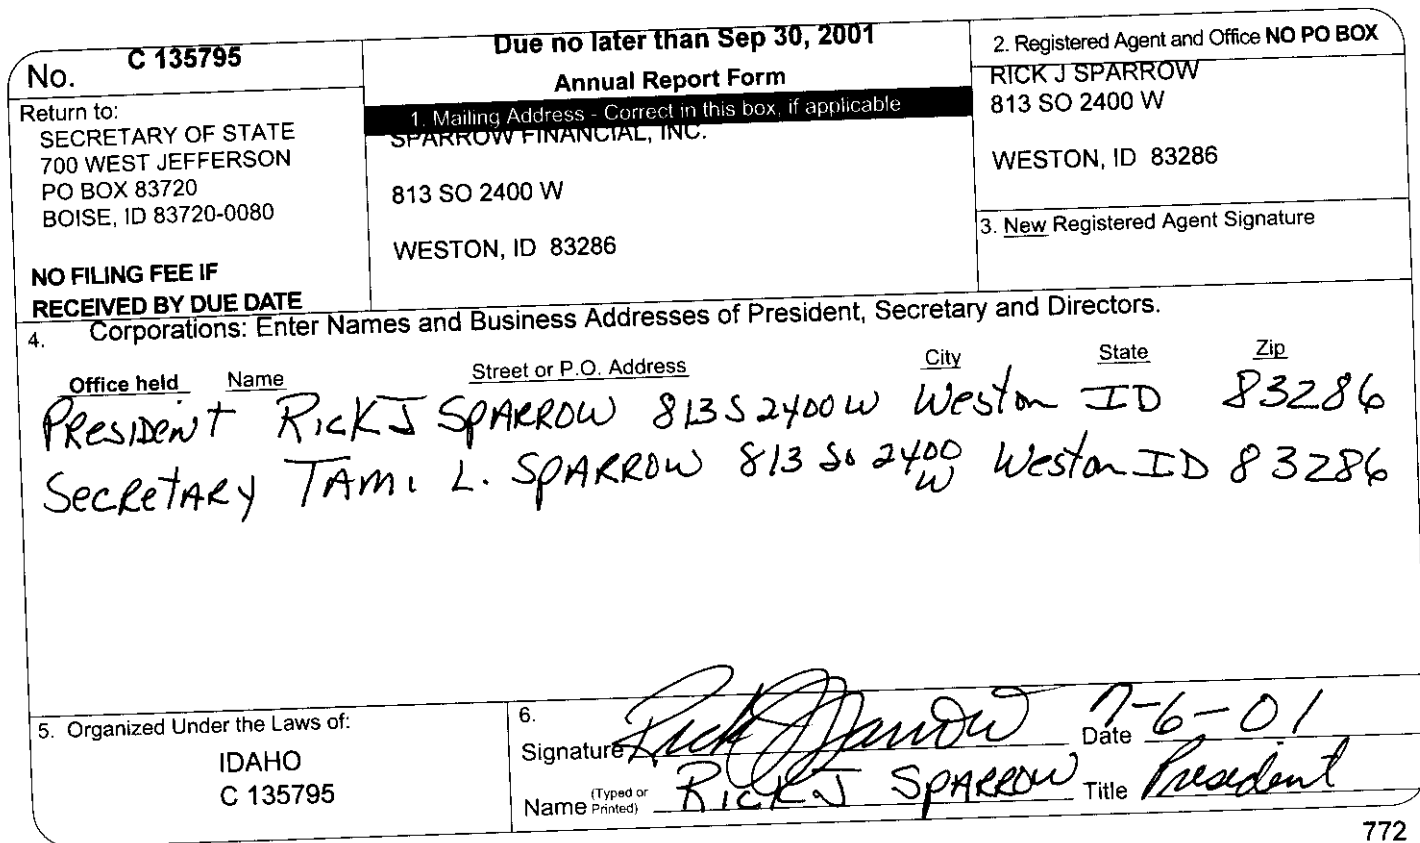 No. C 135795
Return to:
SECRETARY OF STATE
700 WEST JEFFERSON
PO BOX 83720
BOISE, ID 83720-0080
NO FILING FEE IF
RECEIVED BY DUE DATE
Due no later than Sep 30, 2001
Annual Report Form
1. Mailing Address - Correct in this box, if applicable
SPARROW FINANCIAL, INC.
813 SO 2400 W
WESTON, ID 83286
2. Registered Agent and Office NO PO BOX
RICK J SPARROW
813 SO 2400 W
WESTON, ID 83286
3. New Registered Agent Signature
4. Corporations: Enter Names and Business Addresses of President, Secretary and Directors.
Office held Name Street or P.O. Address City State Zip
PRESIDENT RICK J SPARROW 813 S 2400 W Weston ID 83286
SECRETARY TAMI L. SPARROW 813 So 2400 W Weston ID 83286
5. Organized Under the Laws of:
IDAHO
C 135795
6.
Signature Rick J Sparrow Date 7-6-01
Name (Typed or Printed) RICK J SPARROW Title President
772